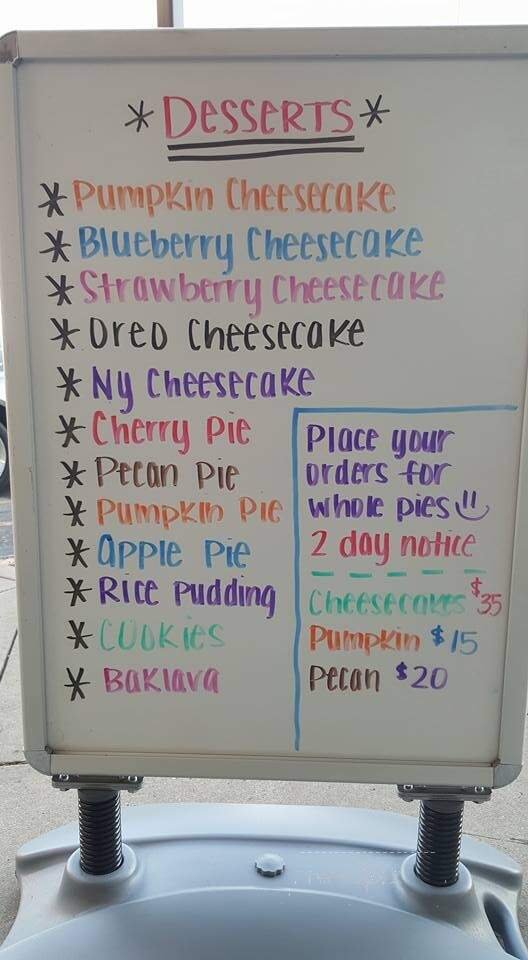 * Desserts *
* Pumpkin Cheesecake
* Blueberry Cheesecake
* Strawberry Cheesecake
* Oreo Cheesecake
* Ny Cheesecake
* Cherry Pie
* Pecan Pie
* Pumpkin Pie
* Apple Pie
* Rice Pudding
* Cookies
* Baklava
Place your
orders for
whole pies
2 day notice
Cheesecakes $35
Pumpkin $15
Pecan $20